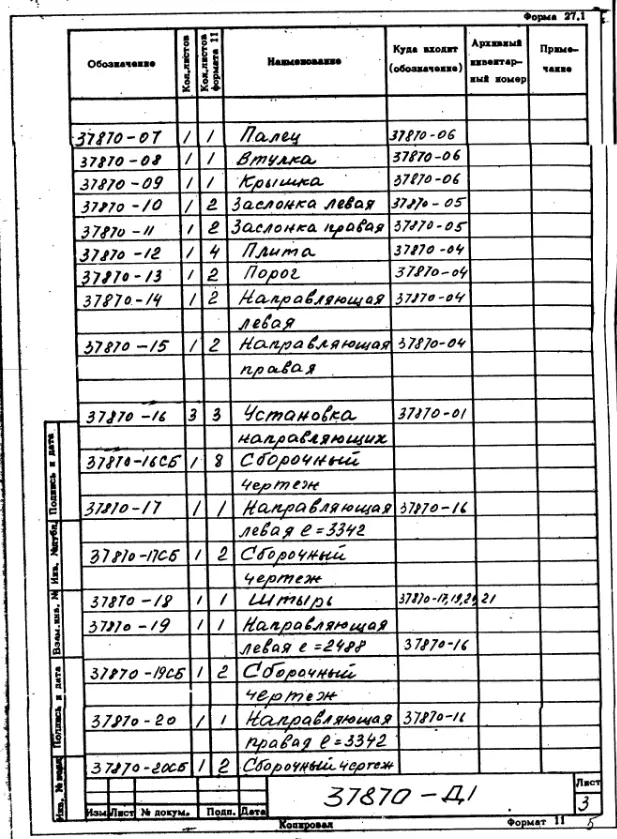 Форма 27.1
Обозначение Кол.листов Кол.листов формата 11 Наименование Куда входит (обозначение) Архивный инвентарный номер Примечание
37870-07 1 1 Палец 37870-06
37870-08 1 1 Втулка 37870-06
37870-09 1 1 Крышка 37870-06
37870-10 1 2 Заслонка левая 37870-05
37870-11 1 2 Заслонка правая 37870-05
37870-12 1 4 Плита 37870-04
37870-13 1 2 Порог 37870-04
37870-14 1 2 Направляющая 37870-04
левая
37870-15 1 2 Направляющая 37870-04
правая
37870-16 3 3 Установка 37870-01
направляющих
37870-16СБ 1 8 Сборочный
чертеж
37870-17 1 1 Направляющая 37870-16
левая ℓ=3342
37870-17СБ 1 2 Сборочный
чертеж
37870-18 1 1 Штырь 37870-17,19,20,21
37870-19 1 1 Направляющая
левая ℓ=2488 37870-16
37870-19СБ 1 2 Сборочный
чертеж
37870-20 1 1 Направляющая 37870-16
правая ℓ=3342
37870-20СБ 1 2 Сборочный чертеж
Подпись и дата
Инв. №дубл.
Взам.инв. №
Подпись и дата
Инв. № подл.
37870-Д1
Лист
3
Изм Лист № докум. Подп. Дата
Копировал Формат 11 5